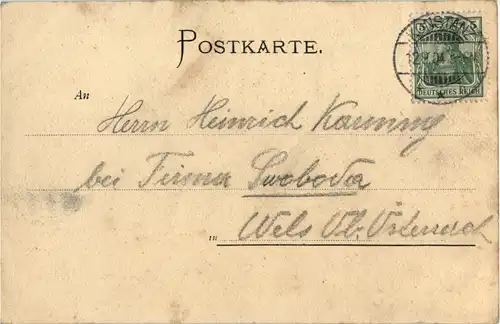 POSTKARTE.
KONSTANZ
DEUTSCHES REICH
An
Herrn Heinrich
bei Firma Swoboda
in Wels Ob. Österreich